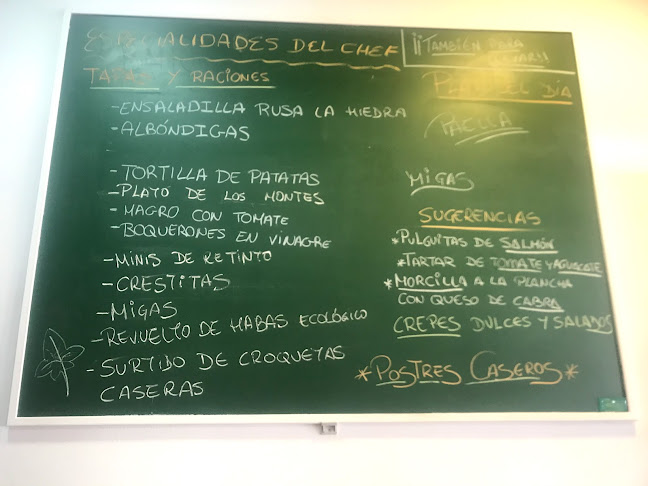 ESPECIALIDADES DEL CHEF
TAPAS Y RACIONES
- ENSALADILLA RUSA LA HIEDRA
- ALBÓNDIGAS
- TORTILLA DE PATATAS
- PLATO DE LOS MONTES
- MAGRO CON TOMATE
- BOQUERONES EN VINAGRE
- MINIS DE RETINTO
- CRESTITAS
- MIGAS
- REVUELTO DE HABAS ECOLÓGICO
- SURTIDO DE CROQUETAS
CASERAS
¡¡TAMBIÉN PARA
LLEVAR!!
PLATO DEL DÍA
PAELLA
MIGAS
SUGERENCIAS
*PULGUITAS DE SALMÓN
*TARTAR DE TOMATE Y AGUACATE
*MORCILLA A LA PLANCHA
CON QUESO DE CABRA
CREPES DULCES Y SALADOS
*POSTRES CASEROS*